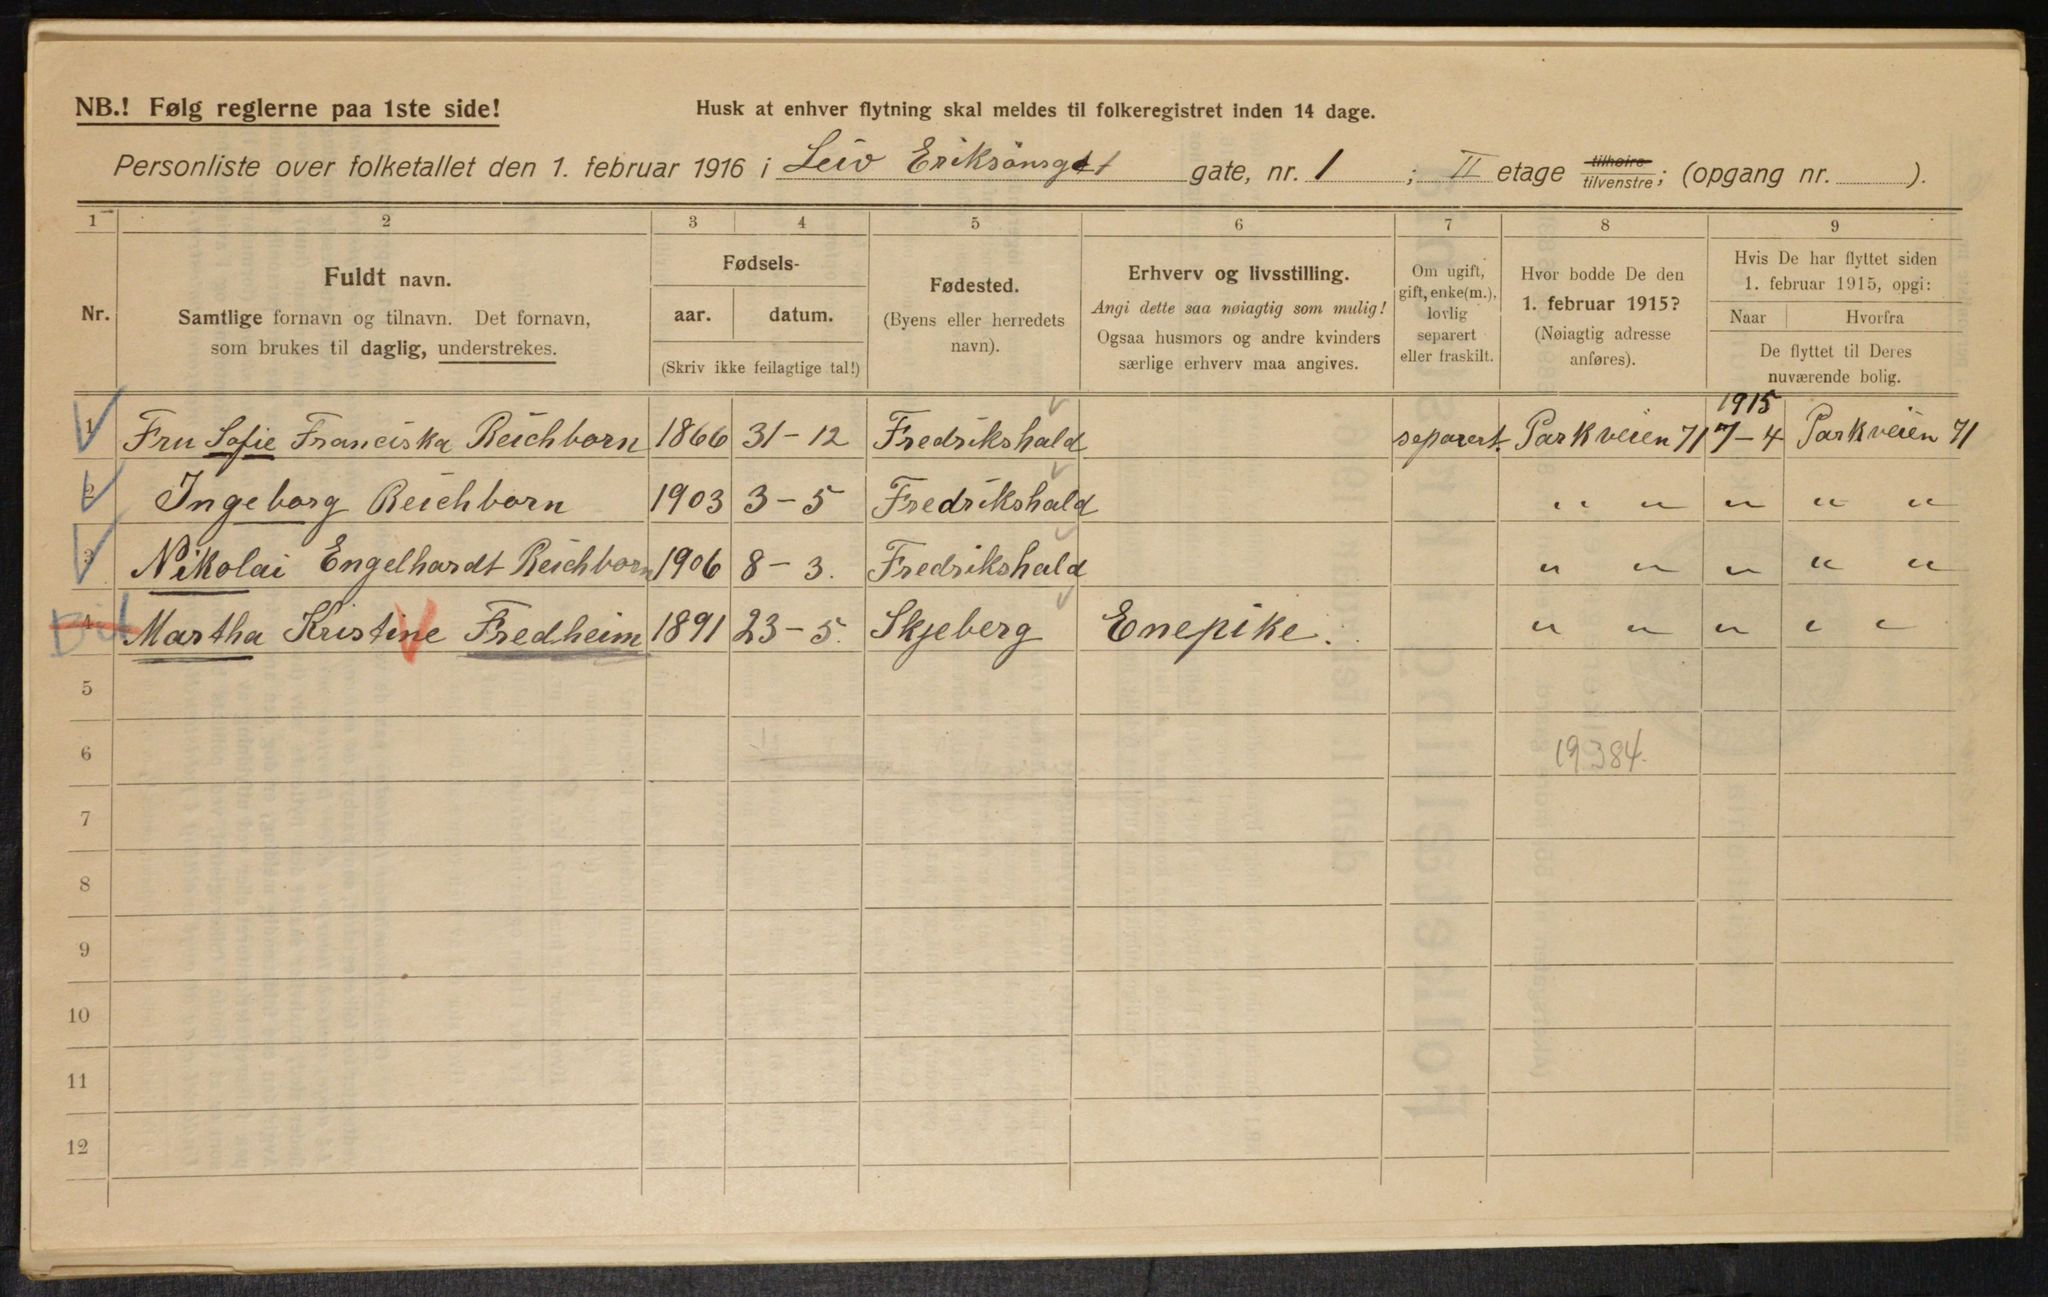 NB.! Følg reglerne paa 1ste side!
Husk at enhver flytning skal meldes til folkeregistret inden 14 dage.
Personliste over folketallet den 1. februar 1916 i Leiv Eriksönsgt gate, nr. 1 ; II etage tilhøire tilvenstre; (opgang nr. ).
1 2 3 4 5 6 7 8 9
Nr.
Fuldt navn.
Samtlige fornavn og tilnavn. Det fornavn,
som brukes til daglig, understrekes.
Fødsels-
aar. datum.
(Skriv ikke feilagtige tal!)
Fødested.
(Byens eller herredets
navn).
Erhverv og livsstilling.
Angi dette saa nøiagtig som mulig!
Ogsaa husmors og andre kvinders
særlige erhverv maa angives.
Om ugift,
gift, enke(m.),
lovlig
separert
eller fraskilt.
Hvor bodde De den
1. februar 1915?
(Nøiagtig adresse
anføres).
Hvis De har flyttet siden
1. februar 1915, opgi:
Naar Hvorfra
De flyttet til Deres
nuværende bolig.
1915
1 Fru Sofie Franciska Reichborn 1866 31-12 Fredrikshald separert. Parkveien 71 7-4 Parkveien 71
2 Ingeborg Reichborn 1903 3-5 Fredrikshald " " " " "
3 Nikolai Engelhardt Reichborn 1906 8-3. Fredrikshald " " " " "
4 Martha Kristine Fredheim 1891 23-5. Skjeberg Enepike. " " " " "
5
6 19384.
7
8
9
10
11
12